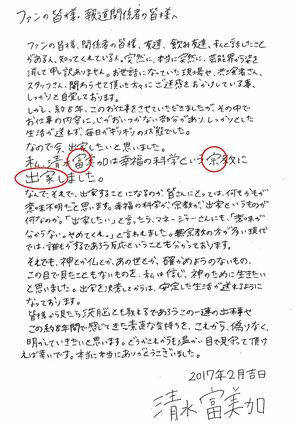 ファンの皆様・報道関係者の皆様へ
ファンの皆様、関係者の皆様、友達、飲み友達、私と話したこと
がある人、知ってくれている人。突然に、本当に突然に、芸能界から姿を
消して申し訳ありません。お世話になっていた現場や、共演者さん、
スタッフさん、関わらせて頂いた方々にご迷惑をおかけしている事、
しっかりと自覚しております。
しかし、約8年、このお仕事をさせていただきましたが、その中で
お仕事の内容に心がおいつかない部分があり、しっかりとした
生活が送れず、毎日がギリギリの状態でした。
なので今、出家したいと思いました。
私、清水富美加は幸福の科学という宗教に
出家しました。
なんで、それで、出家することになるのか、皆さんにとっては、何もかもが
意味不明だと思います。幸福の科学が、宗教が、出家というものが
何なのか。「出家したい」と言ったら、マネージャーさんにも、「意味が
分からない。やめてくれ。」と言われました。無宗教の方が多い現代
では、誰もがするであろう反応ということも分かっております。
それでも、神とか仏とか、あの世とか、確かめようのないもの、
この目で見たこともないものを、私は信じ、神のために生きたい
と思いました。出家を決意してからは、安定した生活が送れるように
なっております。
皆様から見たら、洗脳とも取れるであろうこの一連の出来事や
この約8年間で感じてきた素直な気持ちを、これから、偽りなく、
明かしていきたいと思います。どうかこれからも温かい目で見守って頂け
れば幸いです。本当に本当にありがとうございました。
2017年2月吉日
清水富美加